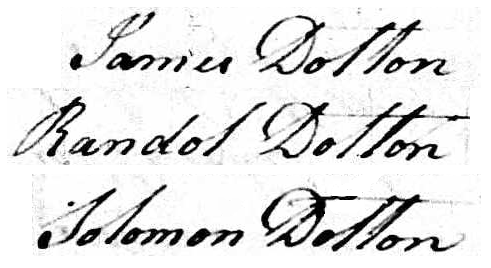 James Dotton
Randol Dotton
Solomon Dotton